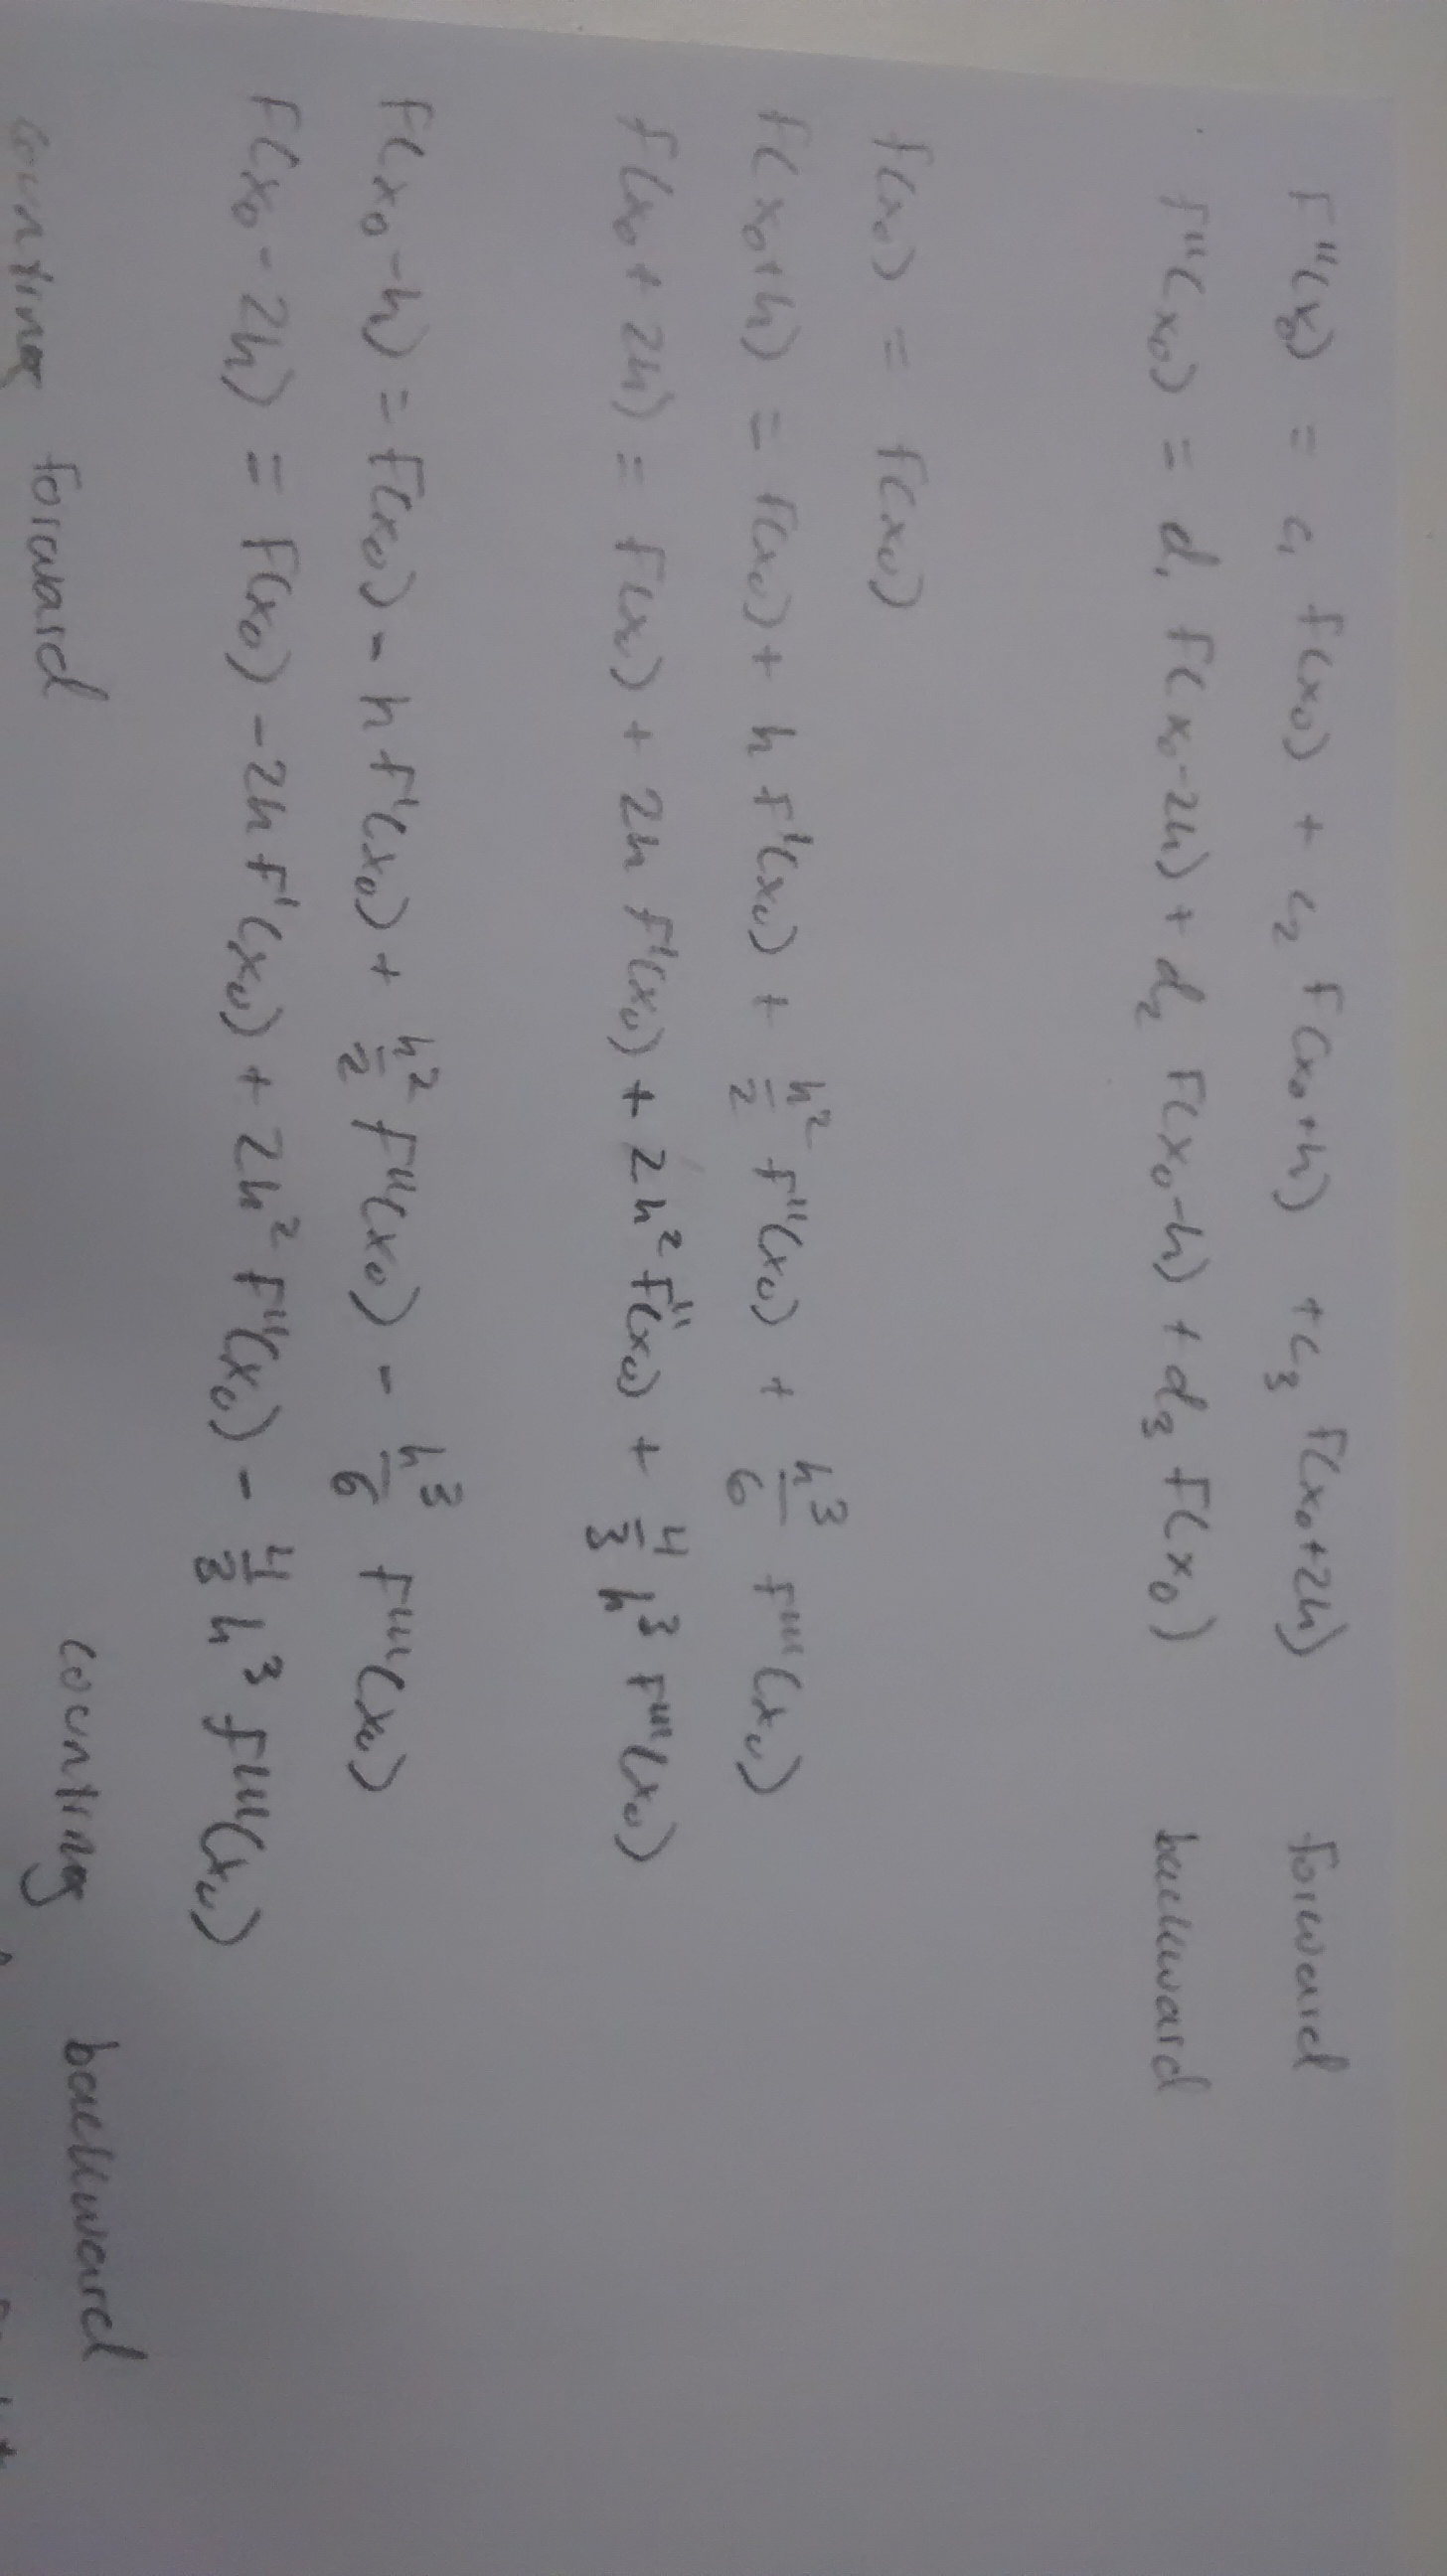 f''(x₀) = c₁ f(x₀) + c₂ f(x₀+h) + c₃ f(x₀+2h) forward
f''(x₀) = d₁ f(x₀-2h) + d₂ f(x₀-h) + d₃ f(x₀) backward
f(x₀) = f(x₀)
f(x₀+h) = f(x₀) + h f'(x₀) + h²/2 f''(x₀) + h³/6 f'''(x₀)
f(x₀+2h) = f(x₀) + 2h f'(x₀) + 2h² f''(x₀) + 4/3 h³ f'''(x₀)
f(x₀-h) = f(x₀) - h f'(x₀) + h²/2 f''(x₀) - h³/6 f'''(x₀)
f(x₀-2h) = f(x₀) - 2h f'(x₀) + 2h² f''(x₀) - 4/3 h³ f'''(x₀)
counting forward counting backward